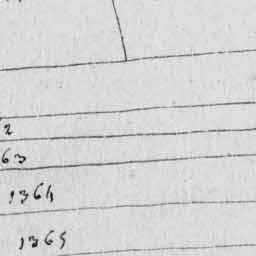 2
63
1364
1365